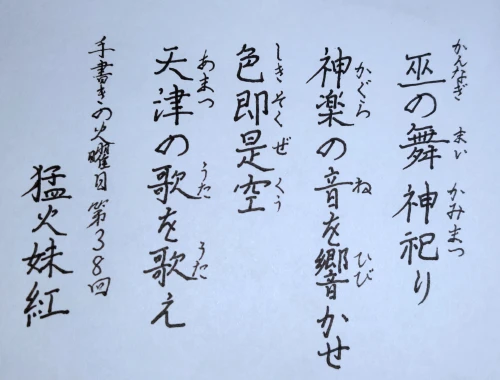 巫の舞 神祀り
かんなぎ まい かみまつ
神楽の音を響かせ
かぐら ね ひび
色即是空
しき そく ぜ くう
天津の歌を歌え
あまつ うた うた
手書きの火曜日 第38回
猛火妹紅